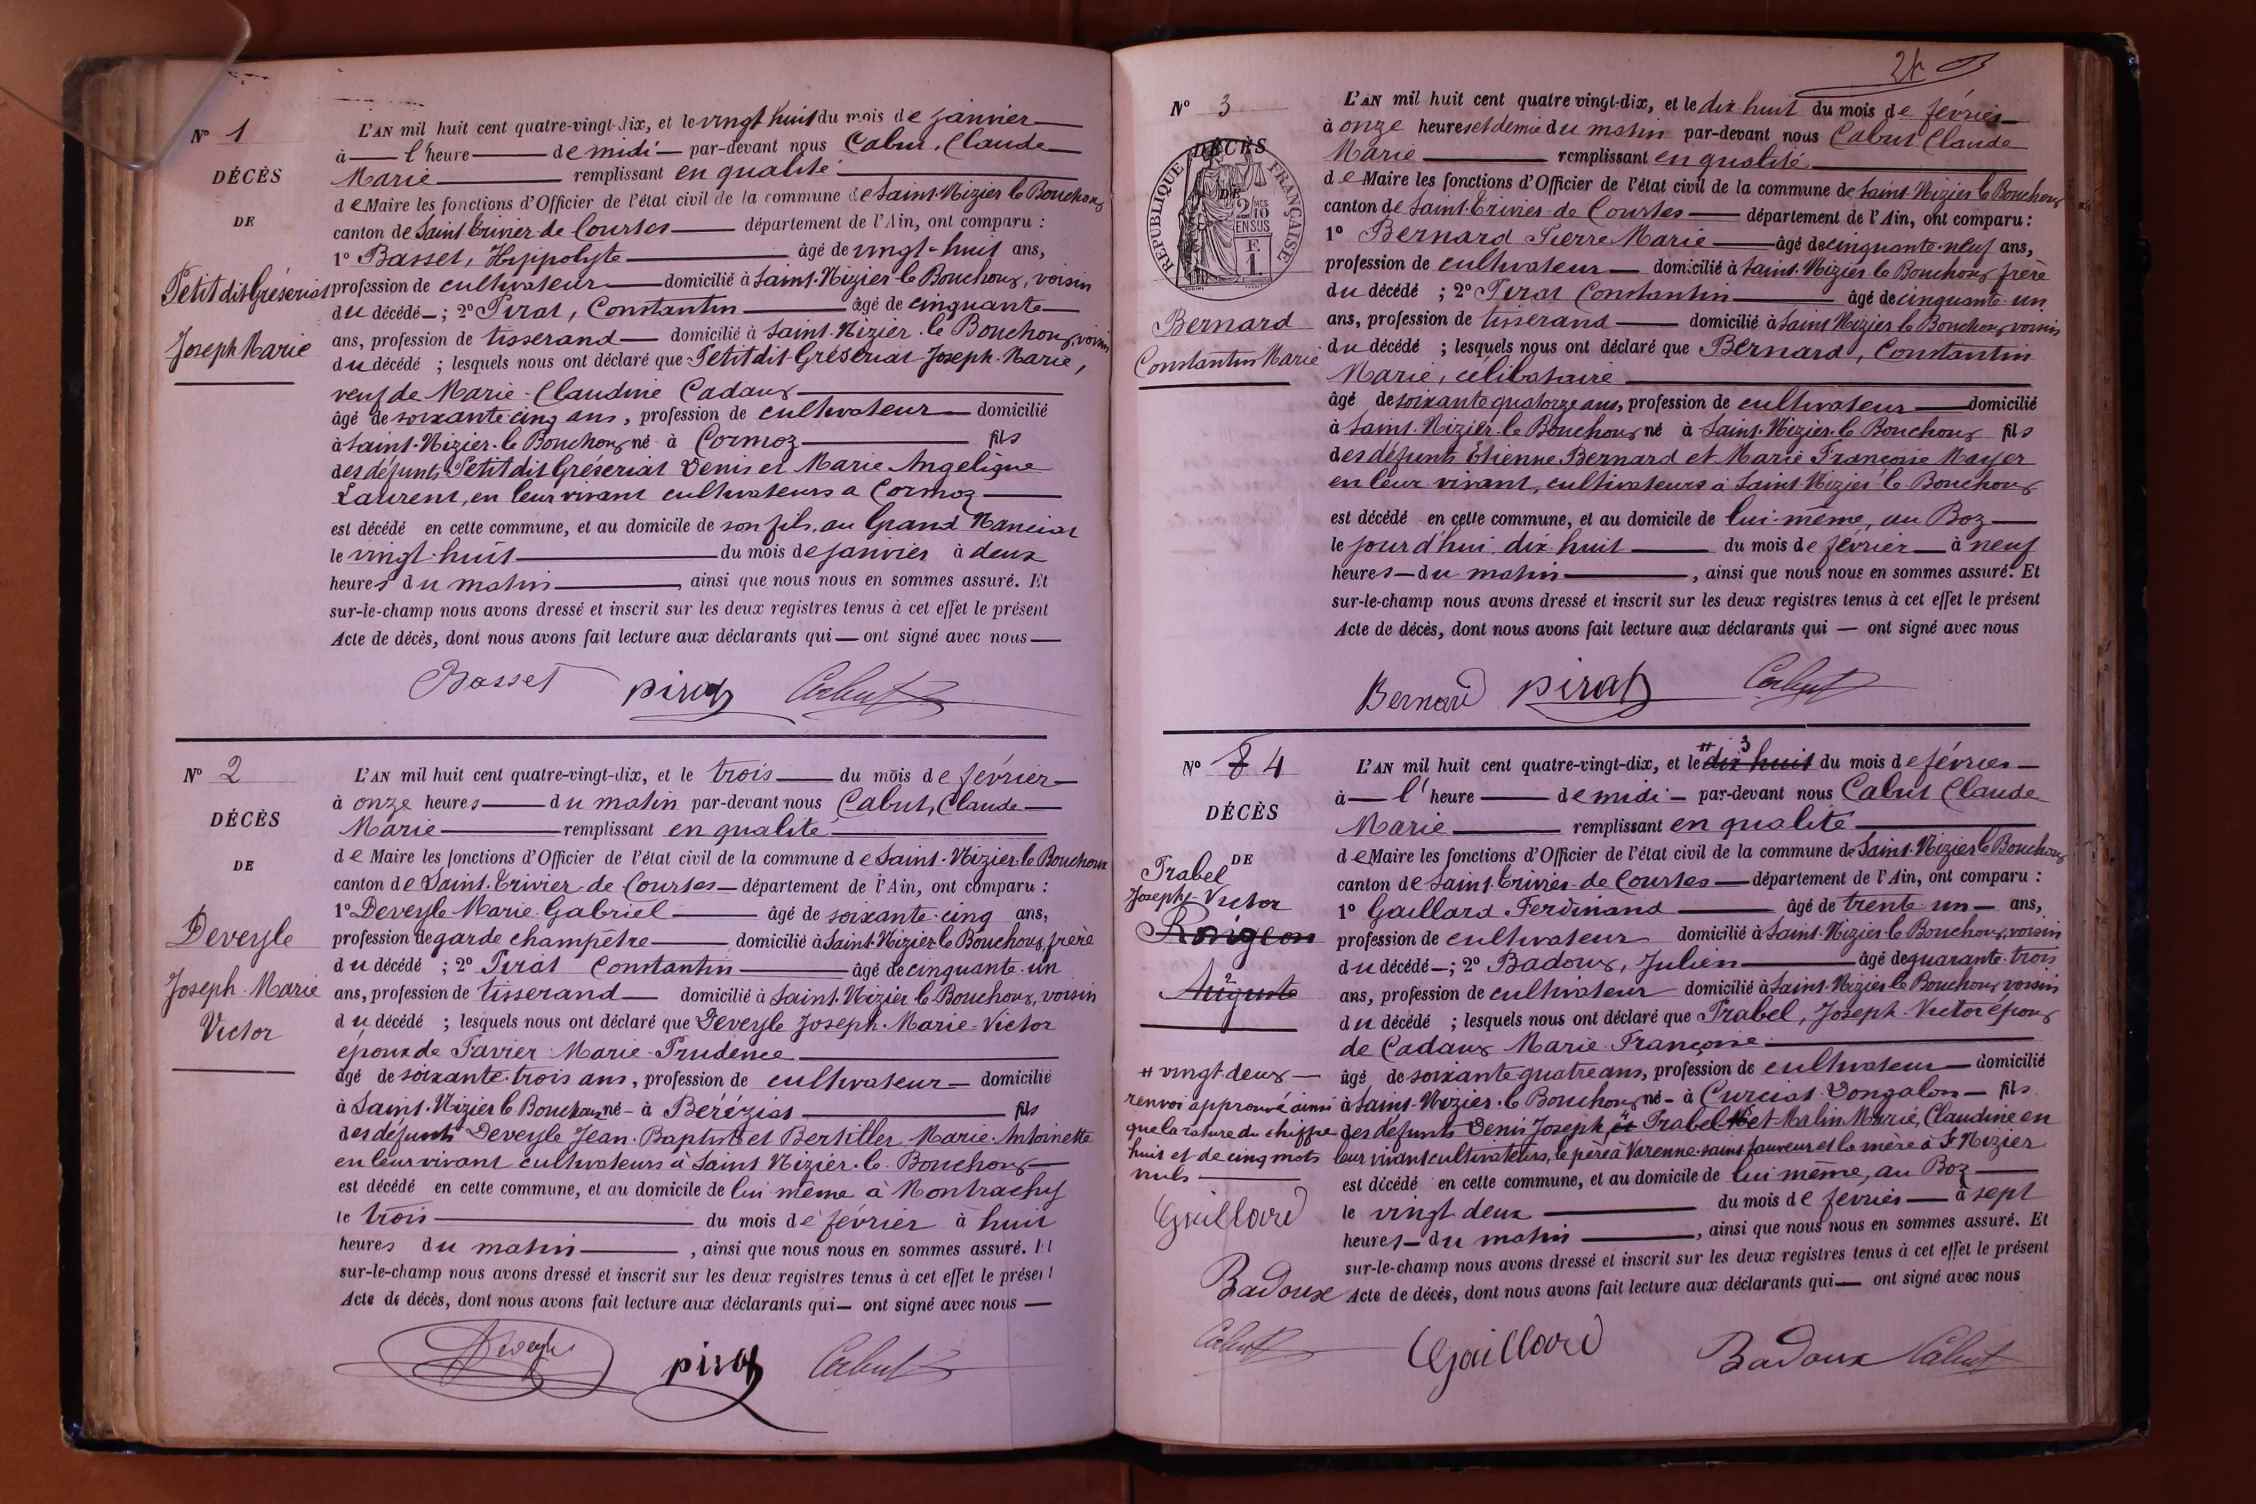 N° 1
DÉCÈS
DE
Petit dit Gréseriat
Joseph Marie
L'AN mil huit cent quatre-vingt-dix, et le vingt huit du mois de janvier
à l'heure de midi par-devant nous Cabut, Claude
Marie remplissant en qualité
de Maire les fonctions d'Officier de l'état civil de la commune de Saint-Nizier le Bouchoux
canton de Saint Trivier de Courtes département de l'Ain, ont comparu :
1° Basset, Hippolyte âgé de vingt-huit ans,
profession de cultivateur domicilié à Saint-Nizier le Bouchoux, voisin
du décédé ; 2° Pirat, Constantin âgé de cinquante
ans, profession de tisserand domicilié à Saint-Nizier le Bouchoux, voisin
du décédé ; lesquels nous ont déclaré que Petit dit Gréseriat Joseph-Marie,
veuf de Marie-Claudine Cadoux
âgé de soixante-cinq ans, profession de cultivateur domicilié
à Saint-Nizier-le Bouchoux né à Cormoz fils
des défunts Petit dit Gréseriat Denis et Marie Angelique
Laurent, en leur vivant cultivateurs à Cormoz
est décédé en cette commune, et au domicile de son fils, au Grand Manciat
le vingt-huit du mois de janvier à deux
heures du matin, ainsi que nous nous en sommes assuré. Et
sur-le-champ nous avons dressé et inscrit sur les deux registres tenus à cet effet le présent
Acte de décès, dont nous avons fait lecture aux déclarants qui ont signé avec nous
Basset pirat Cabut
N° 2
DÉCÈS
DE
Deveyle
Joseph-Marie
Victor
L'AN mil huit cent quatre-vingt-dix, et le trois du mois de février
à onze heures du matin par-devant nous Cabut, Claude
Marie remplissant en qualité
de Maire les fonctions d'Officier de l'état civil de la commune de Saint-Nizier-le Bouchoux
canton de Saint-Trivier de Courtes département de l'Ain, ont comparu :
1° Deveyle Marie-Gabriel âgé de soixante-cinq ans,
profession de garde champêtre domicilié à Saint-Nizier le Bouchoux, frère
du décédé ; 2° Pirat Constantin âgé de cinquante-un
ans, profession de tisserand domicilié à Saint-Nizier le Bouchoux, voisin
du décédé ; lesquels nous ont déclaré que Deveyle Joseph-Marie-Victor
époux de Favier Marie-Prudence
âgé de soixante-trois ans, profession de cultivateur domicilié
à Saint-Nizier le Bouchoux né à Béréziat fils
des défunts Deveyle Jean-Baptiste et Bertiller Marie-Antoinette
en leur vivant cultivateurs à Saint Nizier-le-Bouchoux
est décédé en cette commune, et au domicile de lui même à Montrachy
le trois du mois de février à huit
heures du matin, ainsi que nous nous en sommes assuré. Et
sur-le-champ nous avons dressé et inscrit sur les deux registres tenus à cet effet le présent
Acte de décès, dont nous avons fait lecture aux déclarants qui ont signé avec nous
Deveyle pirat Cabut
N° 3
DÉCÈS
DE
RÉPUBLIQUE FRANÇAISE
2/10 EN SUS
F
1
Bernard
Constantin Marie
L'AN mil huit cent quatre vingt-dix, et le dix huit du mois de février
à onze heures et demie du matin par-devant nous Cabut Claude
Marie remplissant en qualité
de Maire les fonctions d'Officier de l'état civil de la commune de Saint-Nizier le Bouchoux
canton de Saint-Trivier de Courtes département de l'Ain, ont comparu :
1° Bernard Pierre Marie âgé de cinquante-neuf ans,
profession de cultivateur domicilié à Saint-Nizier le Bouchoux frère
du décédé ; 2° Pirat Constantin âgé de cinquante-un
ans, profession de tisserand domicilié à Saint Nizier le Bouchoux, voisin
du décédé ; lesquels nous ont déclaré que Bernard, Constantin
Marie, célibataire
âgé de soixante quatorze ans, profession de cultivateur domicilié
à Saint-Nizier-le Bouchoux né à Saint-Nizier-le Bouchoux fils
des défunts Etienne Bernard et Marie Françoise Mayer
en leur vivant, cultivateurs à Saint Nizier-le Bouchoux
est décédé en cette commune, et au domicile de lui-même, au Boz
le jour d'hui dix huit du mois de février à neuf
heures du matin, ainsi que nous nous en sommes assuré. Et
sur-le-champ nous avons dressé et inscrit sur les deux registres tenus à cet effet le présent
Acte de décès, dont nous avons fait lecture aux déclarants qui ont signé avec nous
Bernard pirat Cabut
N° 8 4
DÉCÈS
DE
Trabel
Joseph-Victor
Rongeon
Auguste
# vingt deux
renvoi approuvé ainsi
que la rature du chiffre
huit et de cinq mots
nuls
Gaillard
Badoux
Cabut
L'AN mil huit cent quatre-vingt-dix, et le # dix huit du mois de février
à l'heure de midi par-devant nous Cabut Claude
Marie remplissant en qualité
de Maire les fonctions d'Officier de l'état civil de la commune de Saint-Nizier le Bouchoux
canton de Saint-Trivier-de Courtes département de l'Ain, ont comparu :
1° Gaillard Ferdinand âgé de trente-un ans,
profession de cultivateur domicilié à Saint-Nizier-le Bouchoux, voisin
du décédé ; 2° Badoux, Julien âgé de quarante-trois
ans, profession de cultivateur domicilié à Saint-Nizier le Bouchoux voisin
du décédé ; lesquels nous ont déclaré que Trabel, Joseph-Victor époux
de Cadoux Marie-Françoise
âgé de soixante quatre ans, profession de cultivateur domicilié
à Saint-Nizier-le Bouchoux né à Curciat-Dongalon fils
des défunts Denis Joseph et Trabel et Malin Marie, Claudine en
leur vivant cultivateurs, le père à Varenne-saint sauveur et la mère à St Nizier
est décédé en cette commune, et au domicile de lui même, au Boz
le vingt deux du mois de février à sept
heures du matin, ainsi que nous nous en sommes assuré. Et
sur-le-champ nous avons dressé et inscrit sur les deux registres tenus à cet effet le présent
Acte de décès, dont nous avons fait lecture aux déclarants qui ont signé avec nous
Gaillard Badoux Cabut